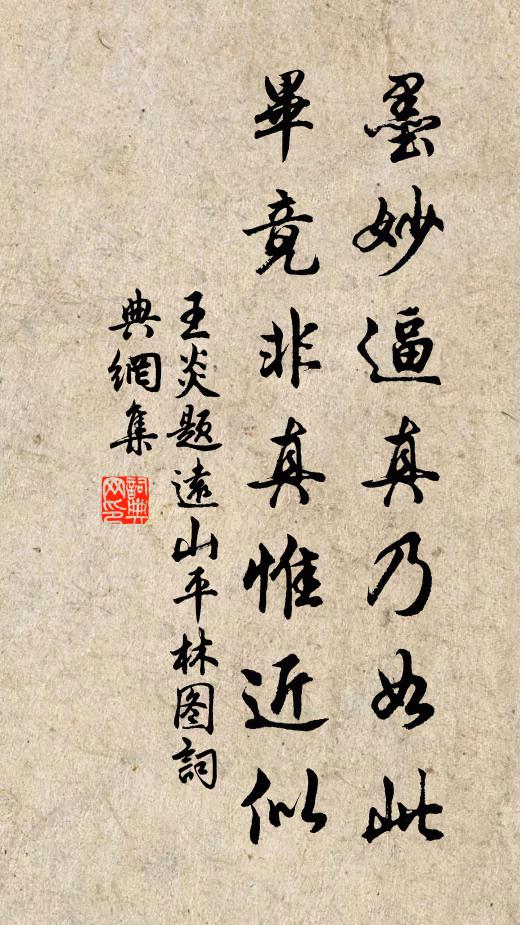 墨妙逼真乃如此
畢竟非真惟近似
王炎題遠山平林图詞
典網集
詞典
网印